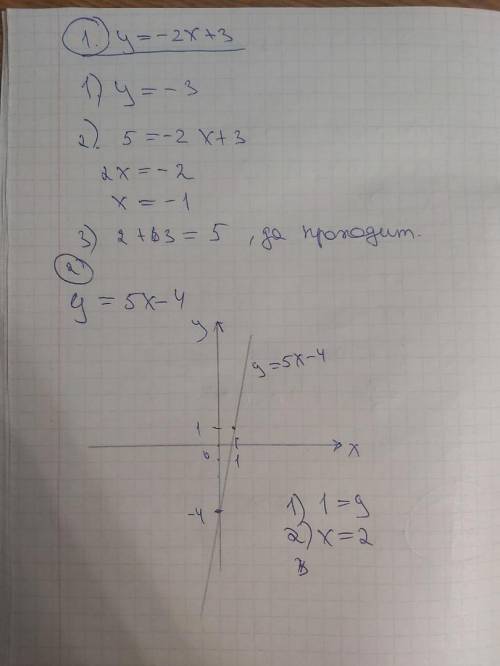 1. y = -2x+3
1) y = -3
2) 5 = -2x+3
2x = -2
x = -1
3) 2+3 = 5, да проходит.
2)
y = 5x-4
y
y=5x-4
1
x
0
1
-4
1) 1=y
2) x=2